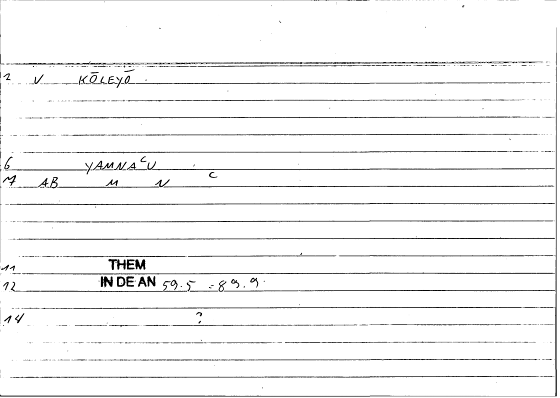 2 V KŌLEYŌ
6 YAMNAᶜU
M AB M N C
11 THEM
12 IN DE AN 59.5 - 89.9.
14 ?